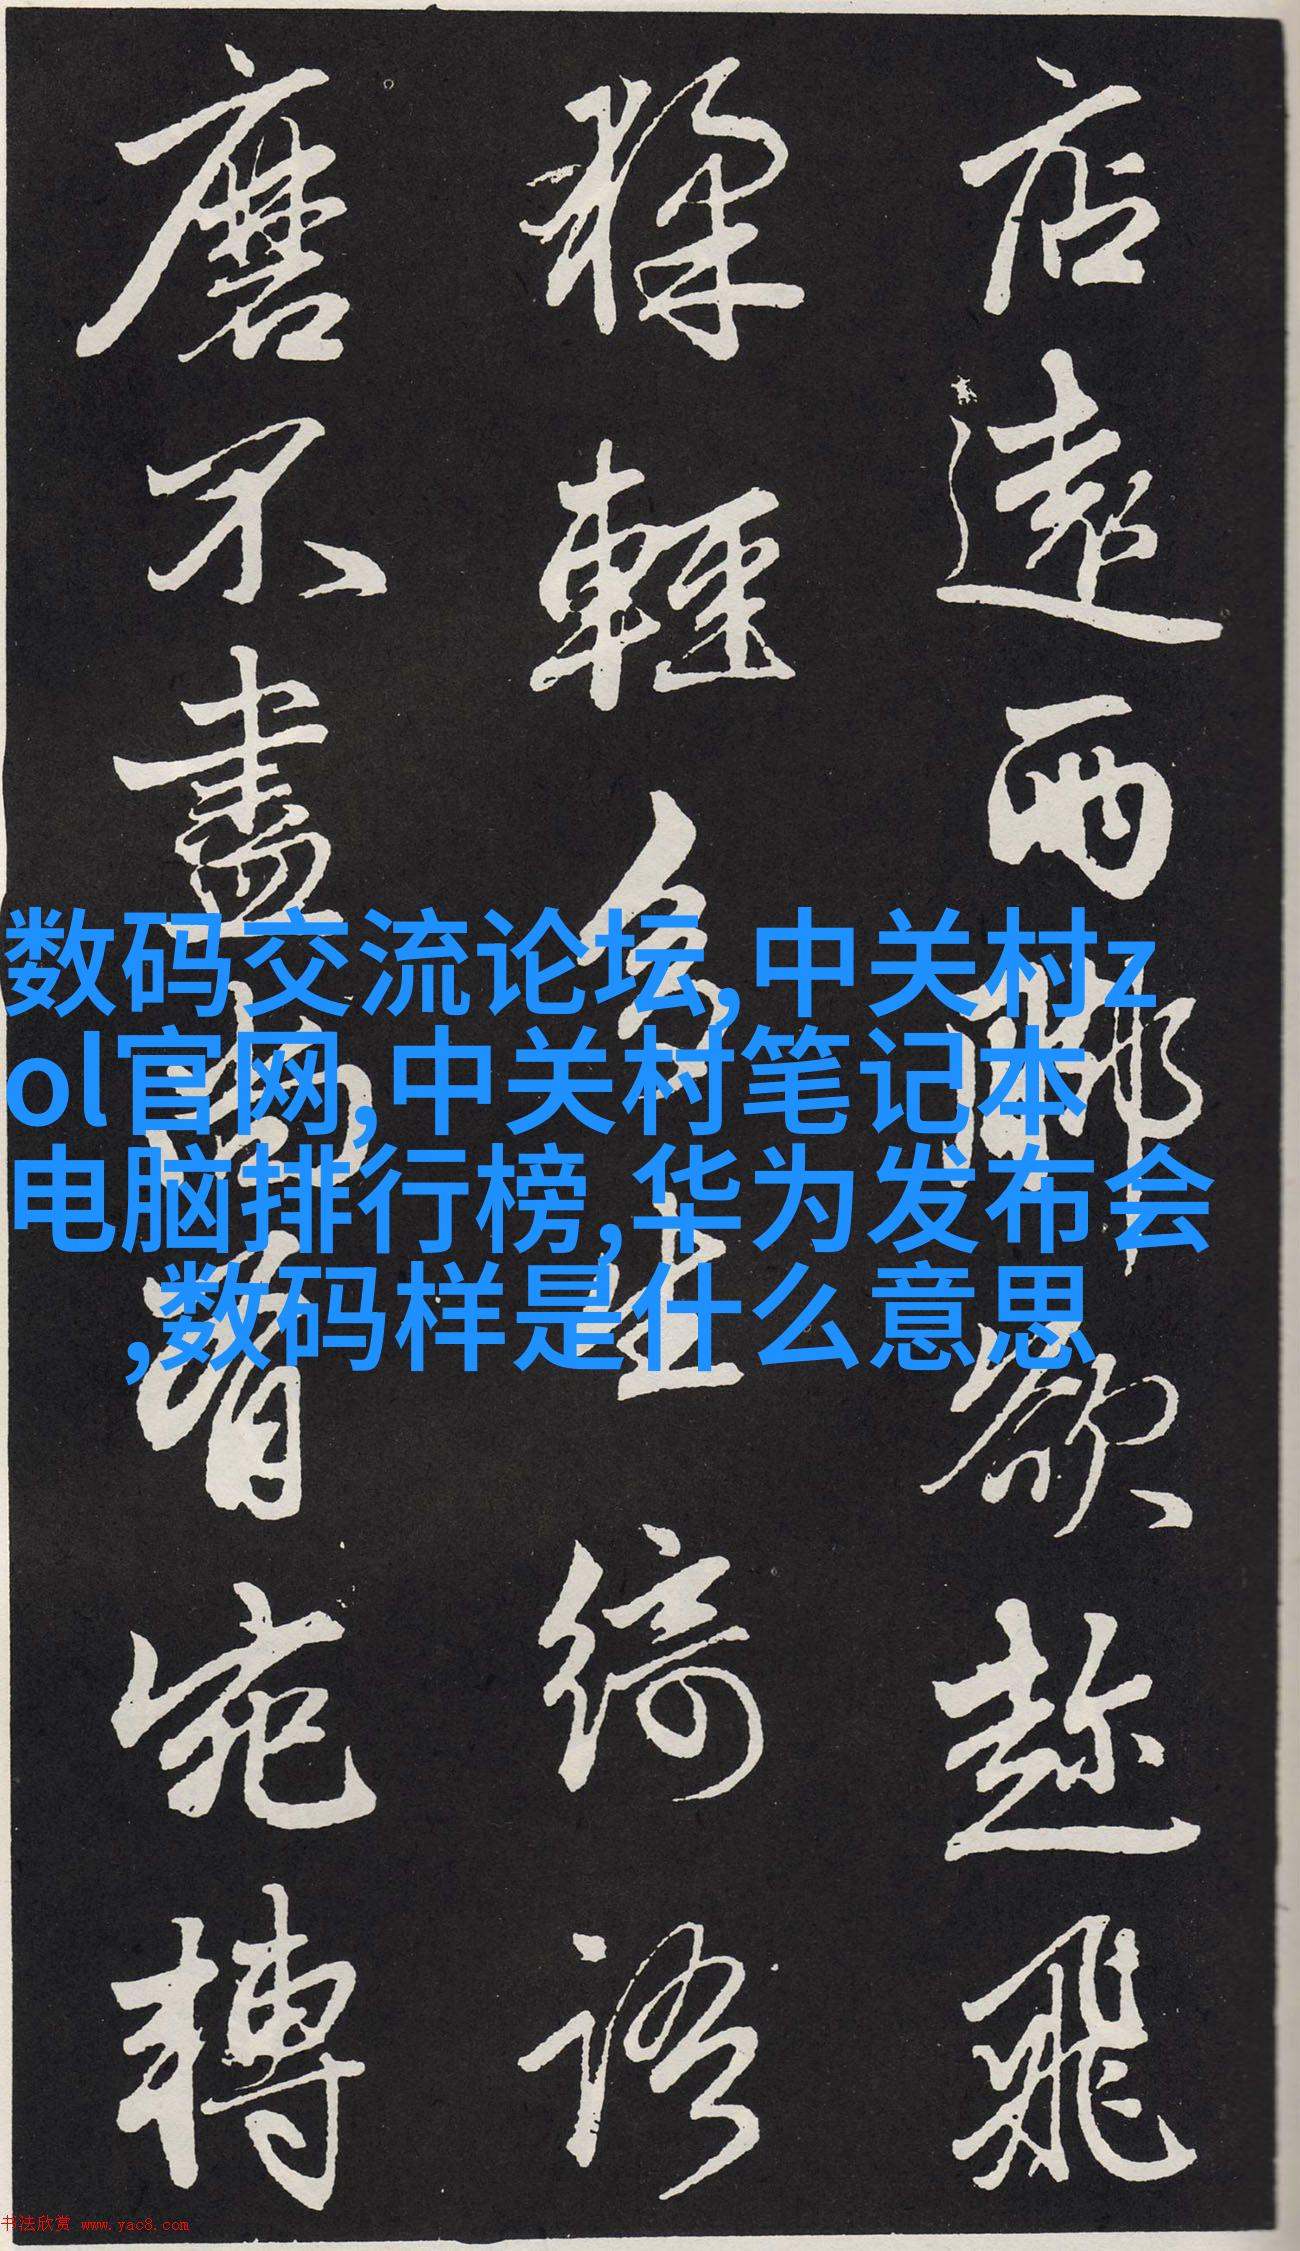 店遠两那欲趂飛
猱輕 生綺語
磨不盡 有宛轉
数码交流论坛,中关村z
ol官网,中关村笔记本
电脑排行榜,华为发布会
,数码样是什么意思
书法欣赏 www.yac8.com